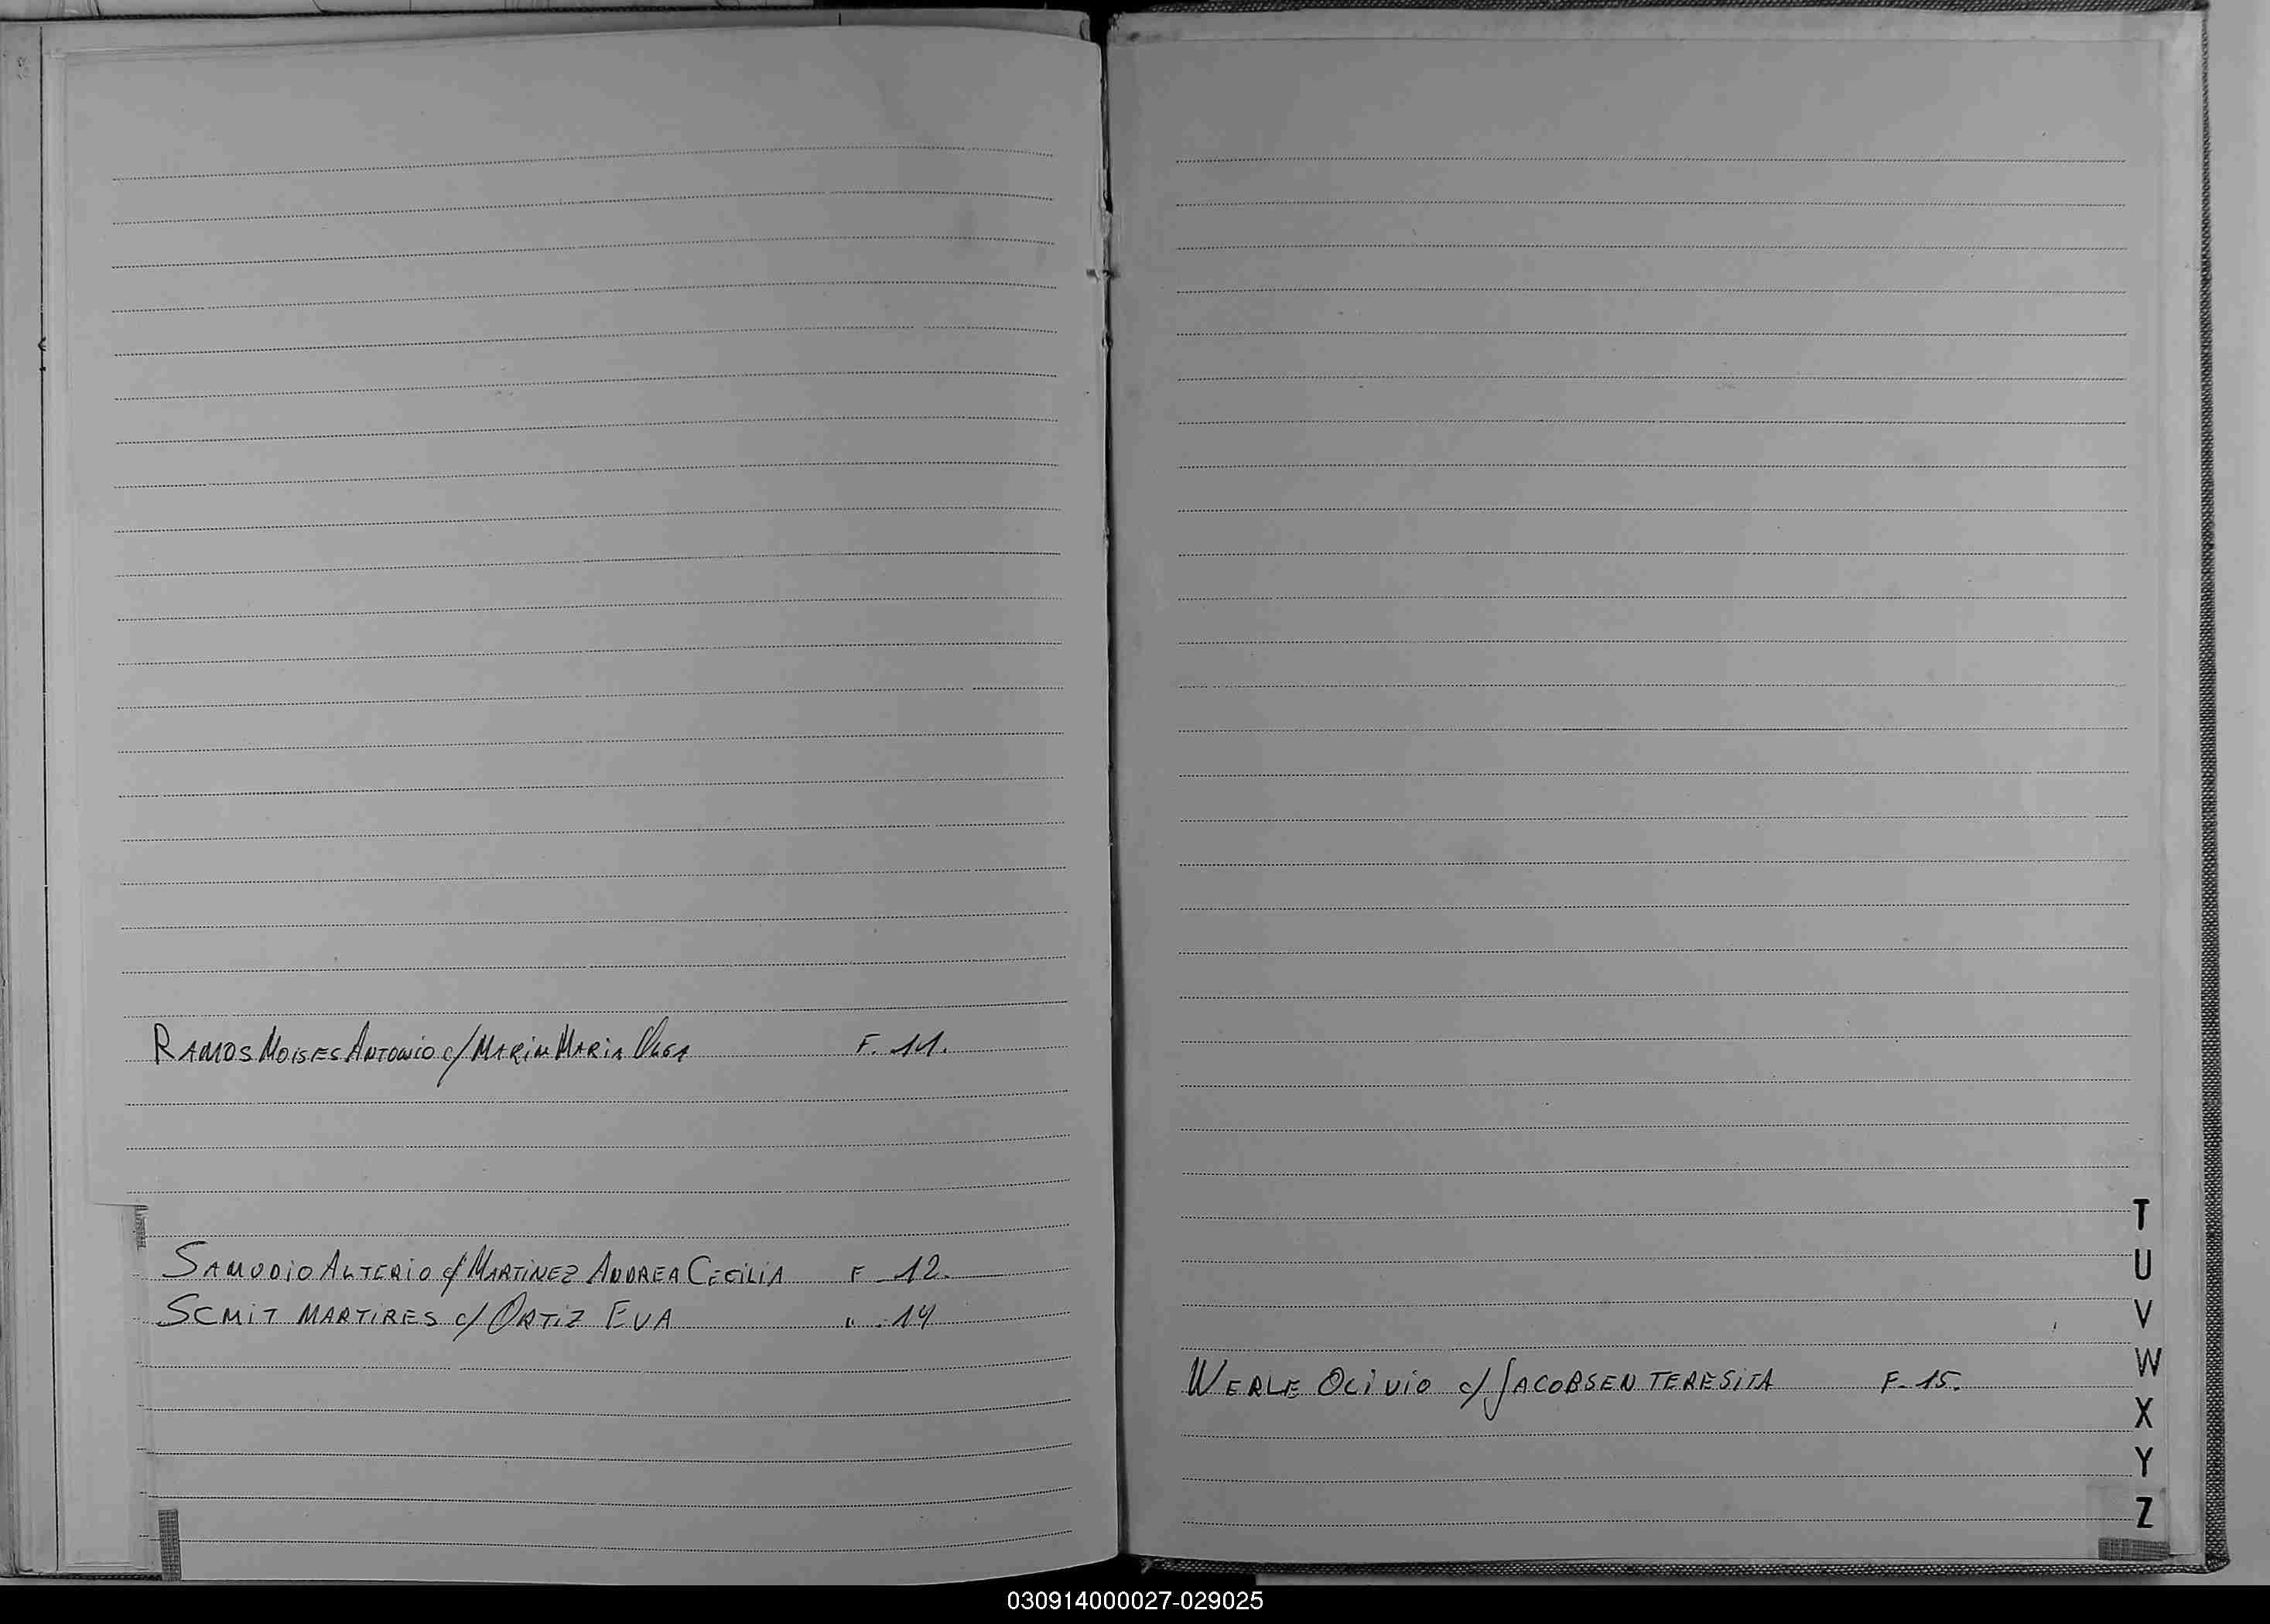 RAMOS MOISES ANTONIO c/ MARIN MARIA OLGA F. 11.
SAMUDIO ALTERIO c/ MARTINEZ ANDREA CECILIA F 12.
SCMIT MARTIRES c/ ORTIZ EVA " . 14
T
U
V
W
WERLE OLIVIO c/ JACOBSEN TERESITA F. 15.
X
Y
Z
030914000027-029025